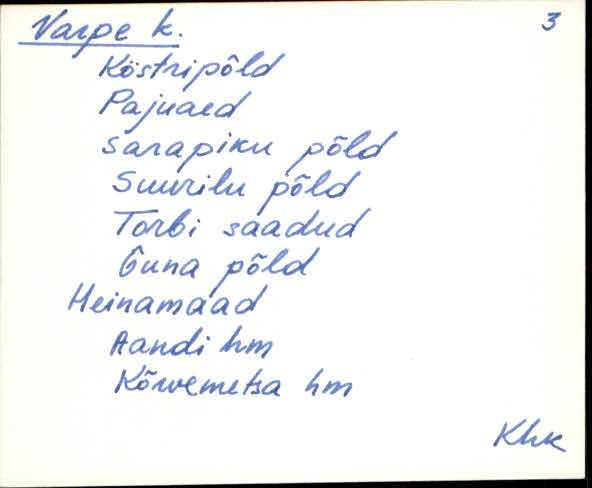 Varpe k. 3
Köstripõld
Pajuaed
Sarapiku põld
Suurilu põld
Torbi saadud
Õuna põld
Heinamaad
Aandi hm
Kõrvemetsa hm
Khk